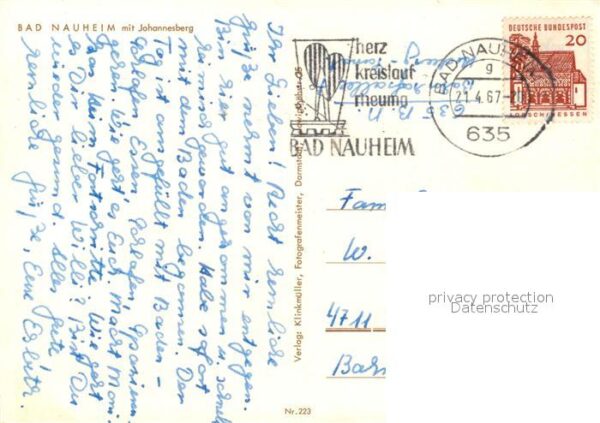 BAD NAUHEIM mit Johannesberg
Ihr Lieben! Recht herzliche
Grüße nehmt von mir entgegen.
Bin hier gut angekommen u. schnell
heimisch geworden. Habe sofort
mit dem Baden begonnen. Der
Tag ist ausgefüllt mit Baden -
schlafen Essen, schlafen, Spazieren-
gehen. Wie geht es Euch. Macht Moni-
ka's Fortschritte. Wie geht
es Dir lieber Willi? Bist Du
wieder gesund. Alles Gute u.
herzliche Grüße, Eure
Verlag: Klinkmüller, Fotografenmeister, Darmstadt
Nr. 223
herz
kreislauf
rheuma
BAD NAUHEIM
BAD NAUHEIM
g
21.4.67
635
DEUTSCHE BUNDESPOST
20
635 B. N.
Fam
W.
4711
privacy protection
Datenschutz